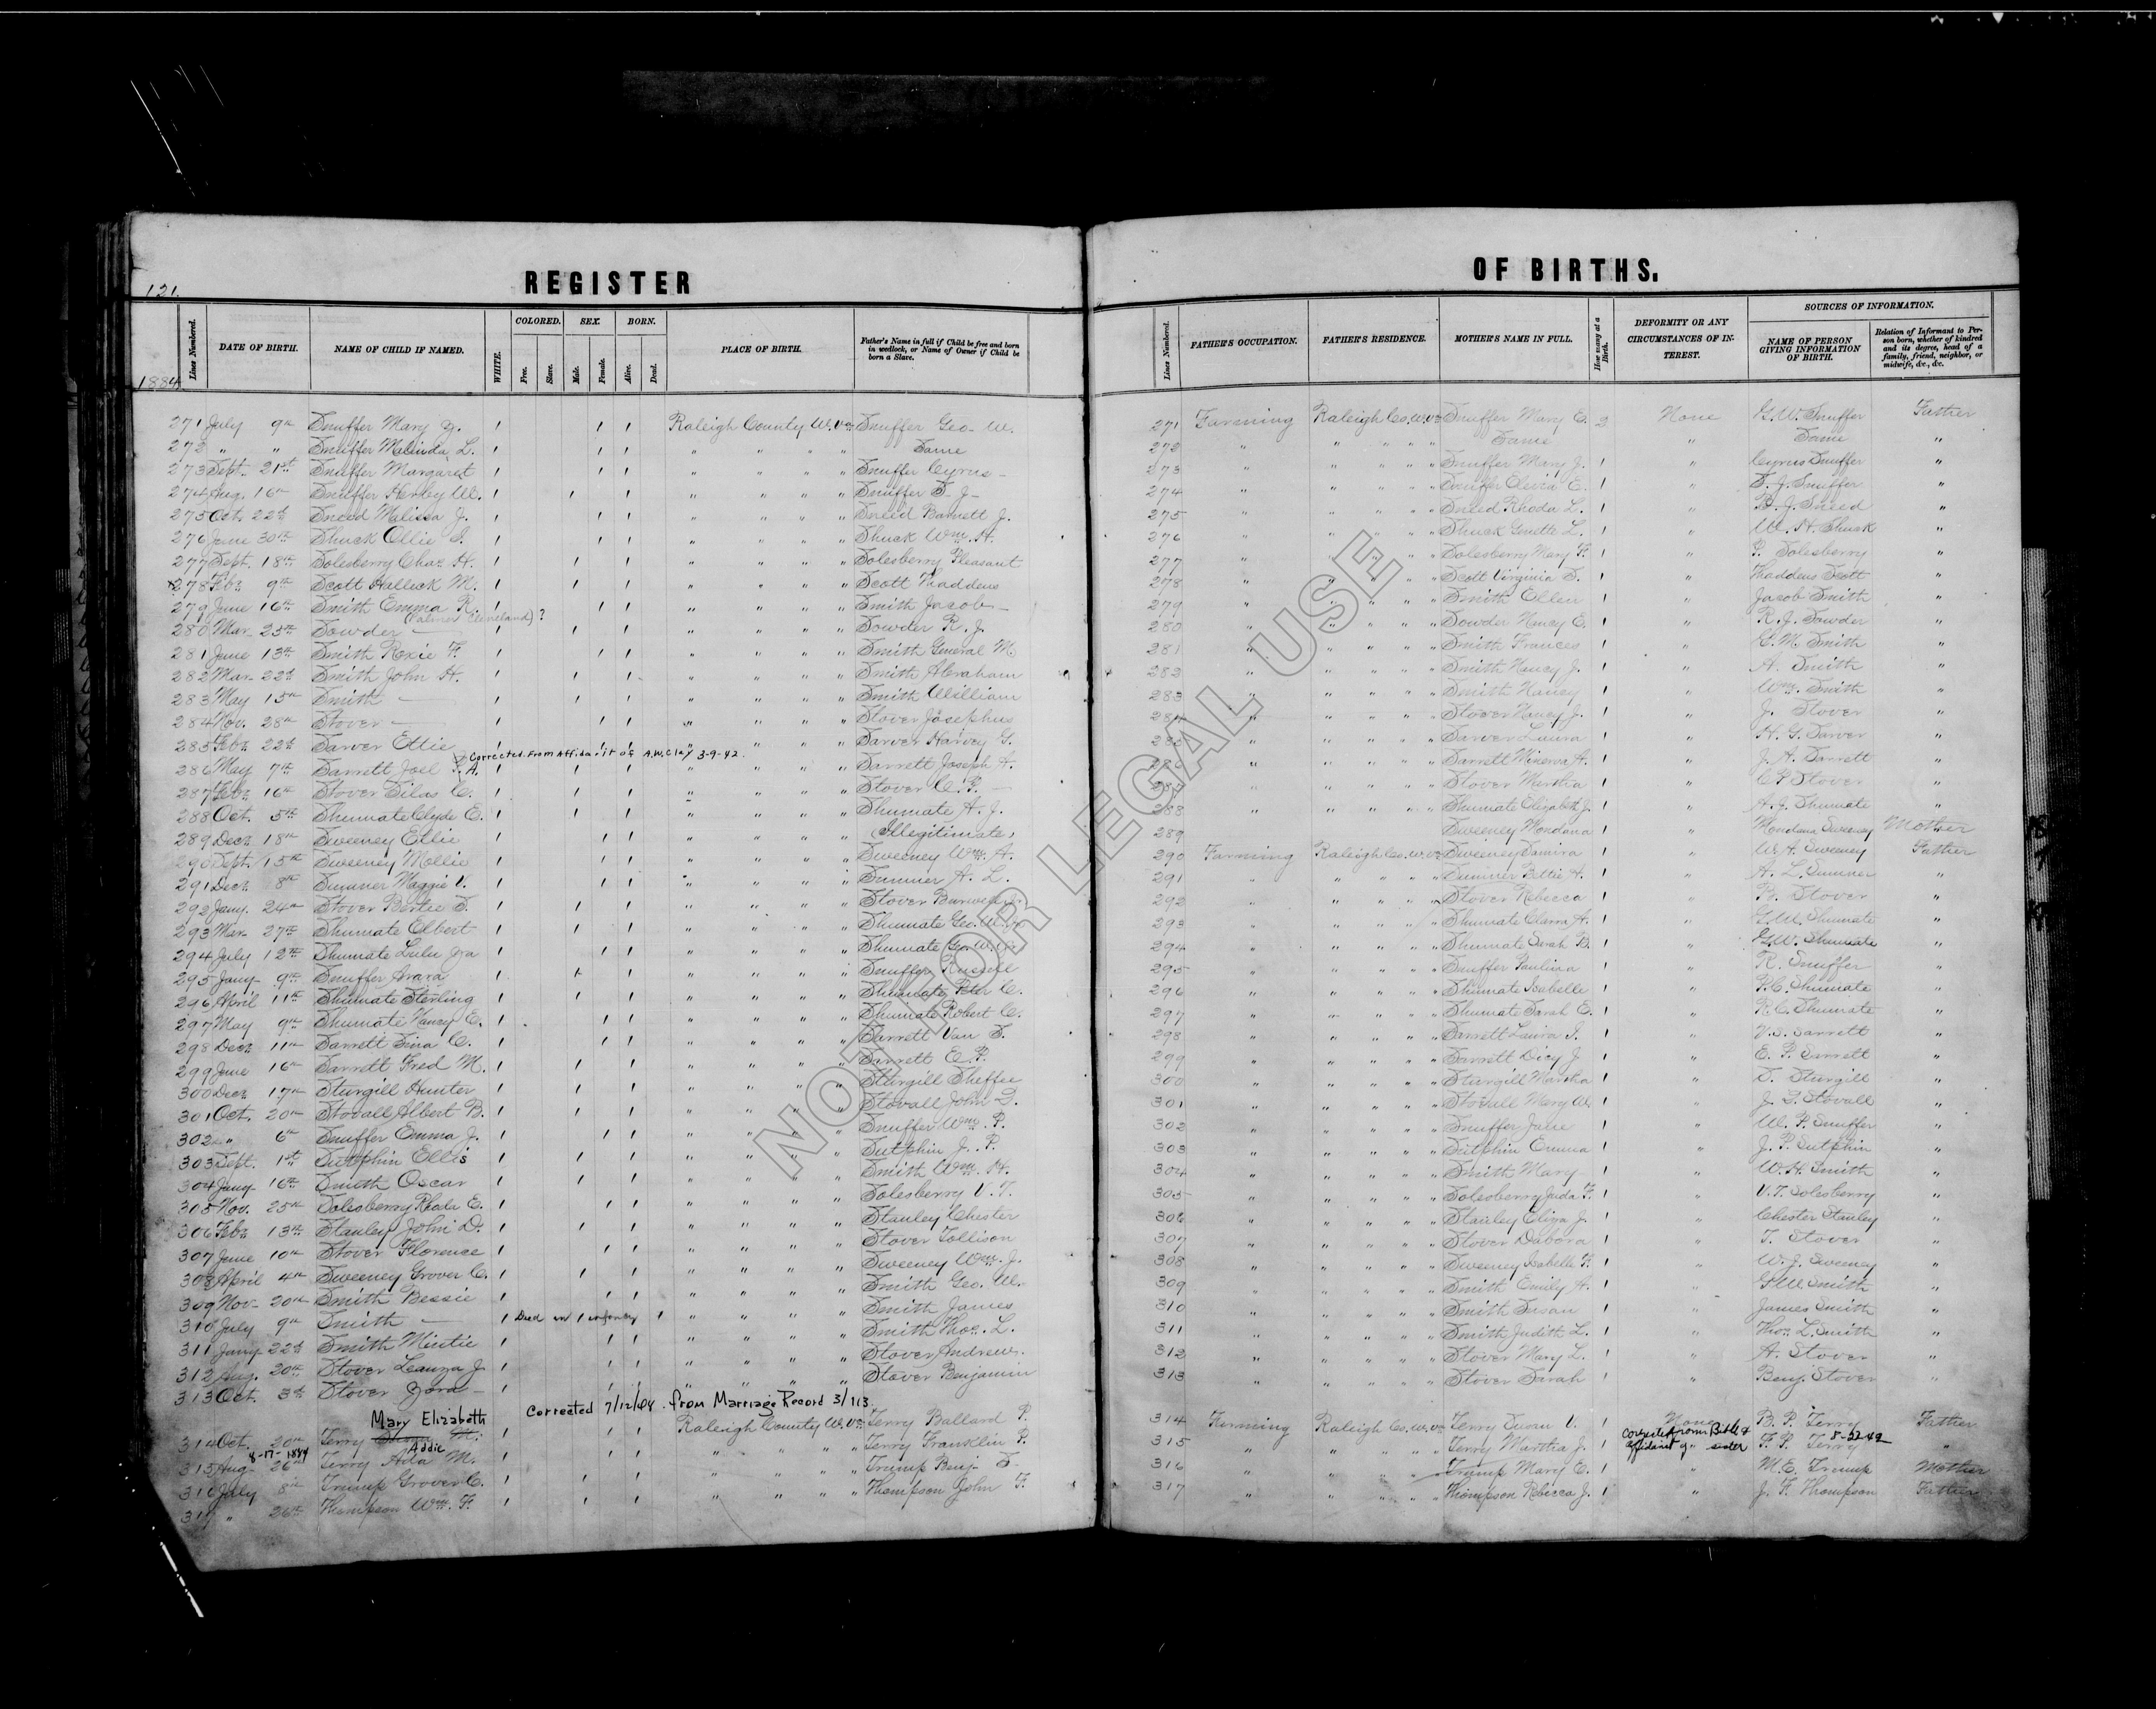 REGISTER
OF BIRTHS.
121.
1884
Lines Numbered.
DATE OF BIRTH.
NAME OF CHILD IF NAMED.
WHITE.
COLORED.
Free.
Slave.
SEX.
Male.
Female.
BORN.
Alive.
Dead.
PLACE OF BIRTH.
Father's Name in full if Child be free and born in wedlock, or Name of Owner if Child be born a Slave.
Lines Numbered.
FATHER'S OCCUPATION.
FATHER'S RESIDENCE.
MOTHER'S NAME IN FULL.
How many at a Birth.
DEFORMITY OR ANY CIRCUMSTANCES OF INTEREST.
SOURCES OF INFORMATION.
NAME OF PERSON GIVING INFORMATION OF BIRTH.
Relation of Informant to Person born, whether of kindred and its degree, head of a family, friend, neighbor, or midwife, &c., &c.
271 July 9th Snuffer Mary J. Raleigh County W. Va. Snuffer Geo. W. 271 Farming Raleigh Co. W. Va. Snuffer Mary E. 2 None G. W. Snuffer Father
272 " " Snuffer Malinda L. Same 272 Same " Same "
273 Sept. 21st Snuffer Margaret Snuffer Cyrus 273 Snuffer Mary J. 1 " Cyrus Snuffer "
274 Aug. 16th Snuffer Henley W. Snuffer S. J. 274 Snuffer Olivia E. 1 " S. J. Snuffer "
275 Oct. 22d Sneed Malissa J. Sneed Barnett J. 275 Sneed Rhoda L. 1 " B. J. Sneed "
276 June 30th Shuck Ollie Shuck Wm. H. 276 Shuck Genette L. 1 " W. H. Shuck "
277 Sept. 18th Solesberry Chas. H. Solesberry Pleasant 277 Solesberry Mary F. 1 " P. Solesberry "
278 Feb. 9th Scott Halleck M. Scott Thaddeus 278 Scott Virginia S. 1 " Thaddeus Scott "
279 June 16th Smith Emma R. Smith Jacob 279 Smith Ellen 1 " Jacob Smith "
(Palmer Cleveland)?
280 Mar. 25th Sowder Sowder R. J. 280 Sowder Nancy E. 1 " R. J. Sowder "
281 June 13th Smith Roxie F. Smith General M. 281 Smith Frances 1 " G. M. Smith "
282 Mar. 22d Smith John H. Smith Abraham 282 Smith Nancy J. 1 " A. Smith "
283 May 15th Smith Smith William 283 Smith Nancy 1 " Wm. Smith "
284 Nov. 28th Stover Stover Josephus 284 Stover Nancy J. 1 " J. Stover "
285 Feb. 22d Sarver Ettie Sarver Harvey G. 285 Sarver Laura 1 " H. G. Sarver "
Corrected From Affidavit of A.W. Clay 3-9-42.
286 May 7th Sarrett Joel A. Sarrett Joseph A. 286 Sarrett Minerva A. 1 " J. A. Sarrett "
287 Feb. 16th Stover Silas C. Stover C. P. 287 Stover Martha 1 " C P Stover "
288 Oct. 5th Shumate Clyde E. Shumate A. J. 288 Shumate Elizabeth J. 1 " A. J. Shumate "
289 Dec. 18th Sweeney Ettie (Illegitimate) 289 Sweeney Mondana 1 " Mondana Sweeney Mother
290 Sept. 15th Sweeney Mollie Sweeney Wm. A. 290 Farming Raleigh Co. W. Va. Sweeney Samira 1 " W. A. Sweeney Father
291 Dec. 8th Sumner Maggie V. Sumner A. L. 291 Sumner Bettie A. 1 " A. L. Sumner "
292 Jany. 24th Stover Bertie S. Stover Burwell Jr. 292 Stover Rebecca 1 " B. Stover "
293 Mar. 27th Shumate Elbert Shumate Geo. W. 293 Shumate Clarra A. 1 " G. W. Shumate "
294 July 12th Shumate Lulu Ira Shumate Geo. W. 294 Shumate Sarah B. 1 " G. W. Shumate "
295 Jany. 9th Snuffer Snuffer Russell 295 Snuffer Paulina 1 " R. Snuffer "
296 April 11th Shumate Sterling Shumate Peter C. 296 Shumate Isabelle 1 " P. C. Shumate "
297 May 9th Shumate Nancy E. Shumate Robert C. 297 Shumate Sarah E. 1 " R. C. Shumate "
298 Dec. 11th Sarrett Sina C. Sarrett Van S. 298 Sarrett Laura 1 " V. S. Sarrett "
299 June 16th Sarrett Fred M. Sarrett E. P. 299 Sarrett Dicy J. 1 " E. P. Sarrett "
300 Dec. 17th Sturgill Hunter Sturgill Sheffee 300 Sturgill Martha 1 " S. Sturgill "
301 Oct. 20th Stovall Albert B. Stovall John 301 Stovall Mary W. 1 " Stovall "
302 " 6th Snuffer Emma J. Snuffer Wm. P. 302 Snuffer Jane 1 " W. P. Snuffer "
303 Sept. 1st Sutphin Ellis Sutphin J. P. 303 Sutphin Emma 1 " J. P. Sutphin "
304 Jany. 16th Smith Oscar Smith Wm. H. 304 Smith Mary 1 " W. H. Smith "
305 Nov. 25th Solesberry Rhoda E. Solesberry V. T. 305 Solesberry Juda F. 1 " V. T. Solesberry "
306 Feb. 13th Stanley John D. Stanley Chester 306 Stanley Eliza J. 1 " Chester Stanley "
307 June 10th Stover Florence Stover Tollison 307 Stover Dabora 1 " T. Stover "
308 April 4th Sweeney Grover C. Sweeney Wm. J. 308 Sweeney Isabelle F. 1 " W. J. Sweeney "
309 Nov. 20th Smith Bessie Smith Geo. W. 309 Smith Emily A. 1 " G. W. Smith "
310 July 9th Smith Died in infancy Smith James 310 Smith Susan 1 " James Smith "
311 Jany. 22d Smith Mintie Smith Thos. L. 311 Smith Judith L. 1 " Thos. L. Smith "
312 Aug. 20th Stover Leanza J. Stover Andrew 312 Stover Mary L. 1 " A. Stover "
313 Oct. 3d Stover Zora Stover Benjamin 313 Stover Sarah 1 " Benj. Stover "
Mary Elizabeth Corrected 7/12/64 from Marriage Record 3/113.
314 Oct. 20th Terry M. Raleigh County W. Va. Terry Ballard P. 314 Farming Raleigh Co. W. Va. Terry Susan V. 1 None B. P. Terry Father
8-17-1884 Addie Corrected from Bible & affidavit of sister 8-22-42
315 Aug. 26th Terry Ada M. Terry Franklin P. 315 Terry Martha J. 1 F. P. Terry "
316 July 8th Trump Grover C. Trump Benj. S. 316 Trump Mary E. 1 " M. E. Trump Mother
317 " 26th Thompson Wm. F. Thompson John F. 317 Thompson Rebecca J. 1 " J. F. Thompson Father
NOT FOR LEGAL USE